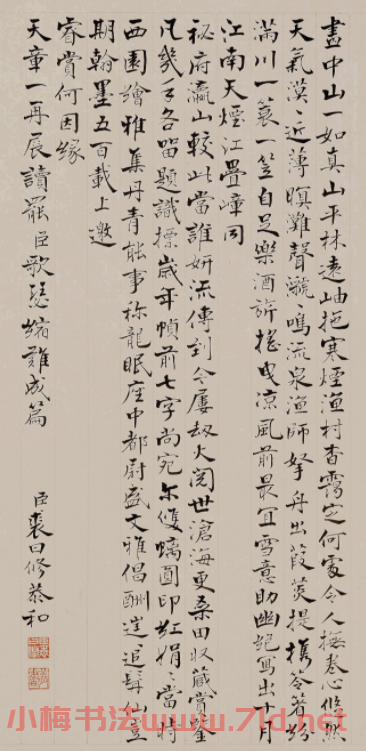 畫中山一如真山平林遠岫拖寒煙漁村杳靄定何處令人撫卷心悠然
天氣漠〻近薄暝灘聲㶁〻鳴流泉漁師拏舟出葭菼提攜笭箸紛
滿川一蓑一笠自足樂酒旂搖曳涼風前最宜雪意助幽絕寫出十月
江南天煙江疊嶂同
祕府瀛山較此當誰妍流傳到今屢劫火閱世滄海更桑田收藏賞鑒
凡幾手各留題識標歲年幀前七字尚宛尔雙螭圓印紅娟〻當時
西園繪雅集丹青能事称龍眠座中都尉盛文雅倡酬追髯仙豈
期翰墨五百載上邀
睿賞何因緣
天章一再展讀罷臣歌瑟縮難成篇
臣裘曰修恭和
小梅书法www.7ld.net